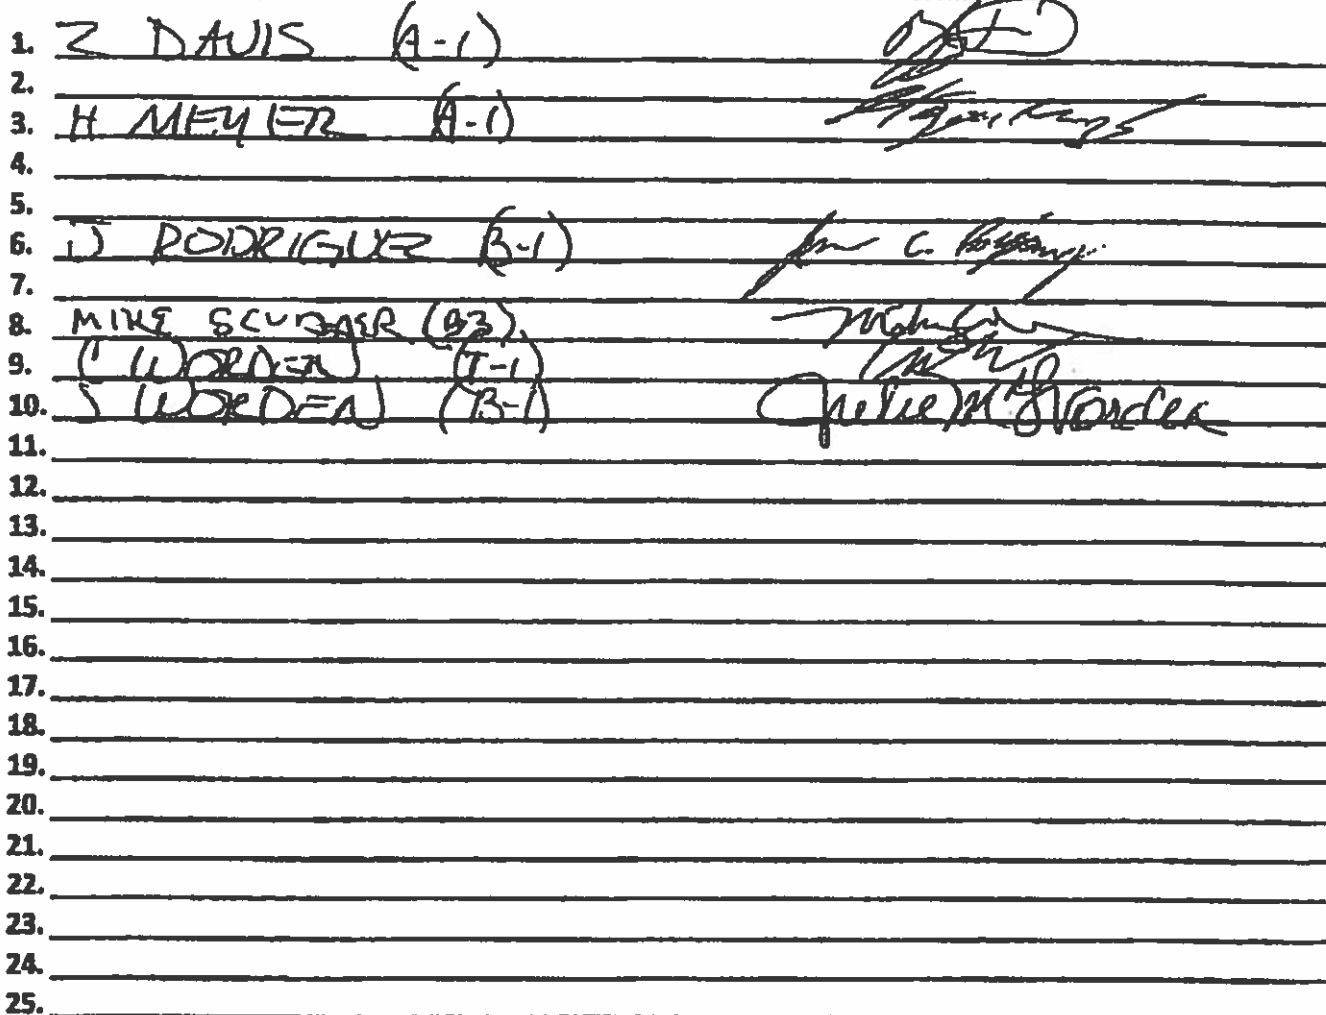 1. Z DAVIS (A-1)
2.
3. H MEYER (A-1)
4.
5.
6. J RODRIGUEZ (B-1)
7.
8. MIKE SCUDDER (B3)
9. C WORDEN (T-1)
10. J WORDEN (B-1) Julie M Worden
11.
12.
13.
14.
15.
16.
17.
18.
19.
20.
21.
22.
23.
24.
25.